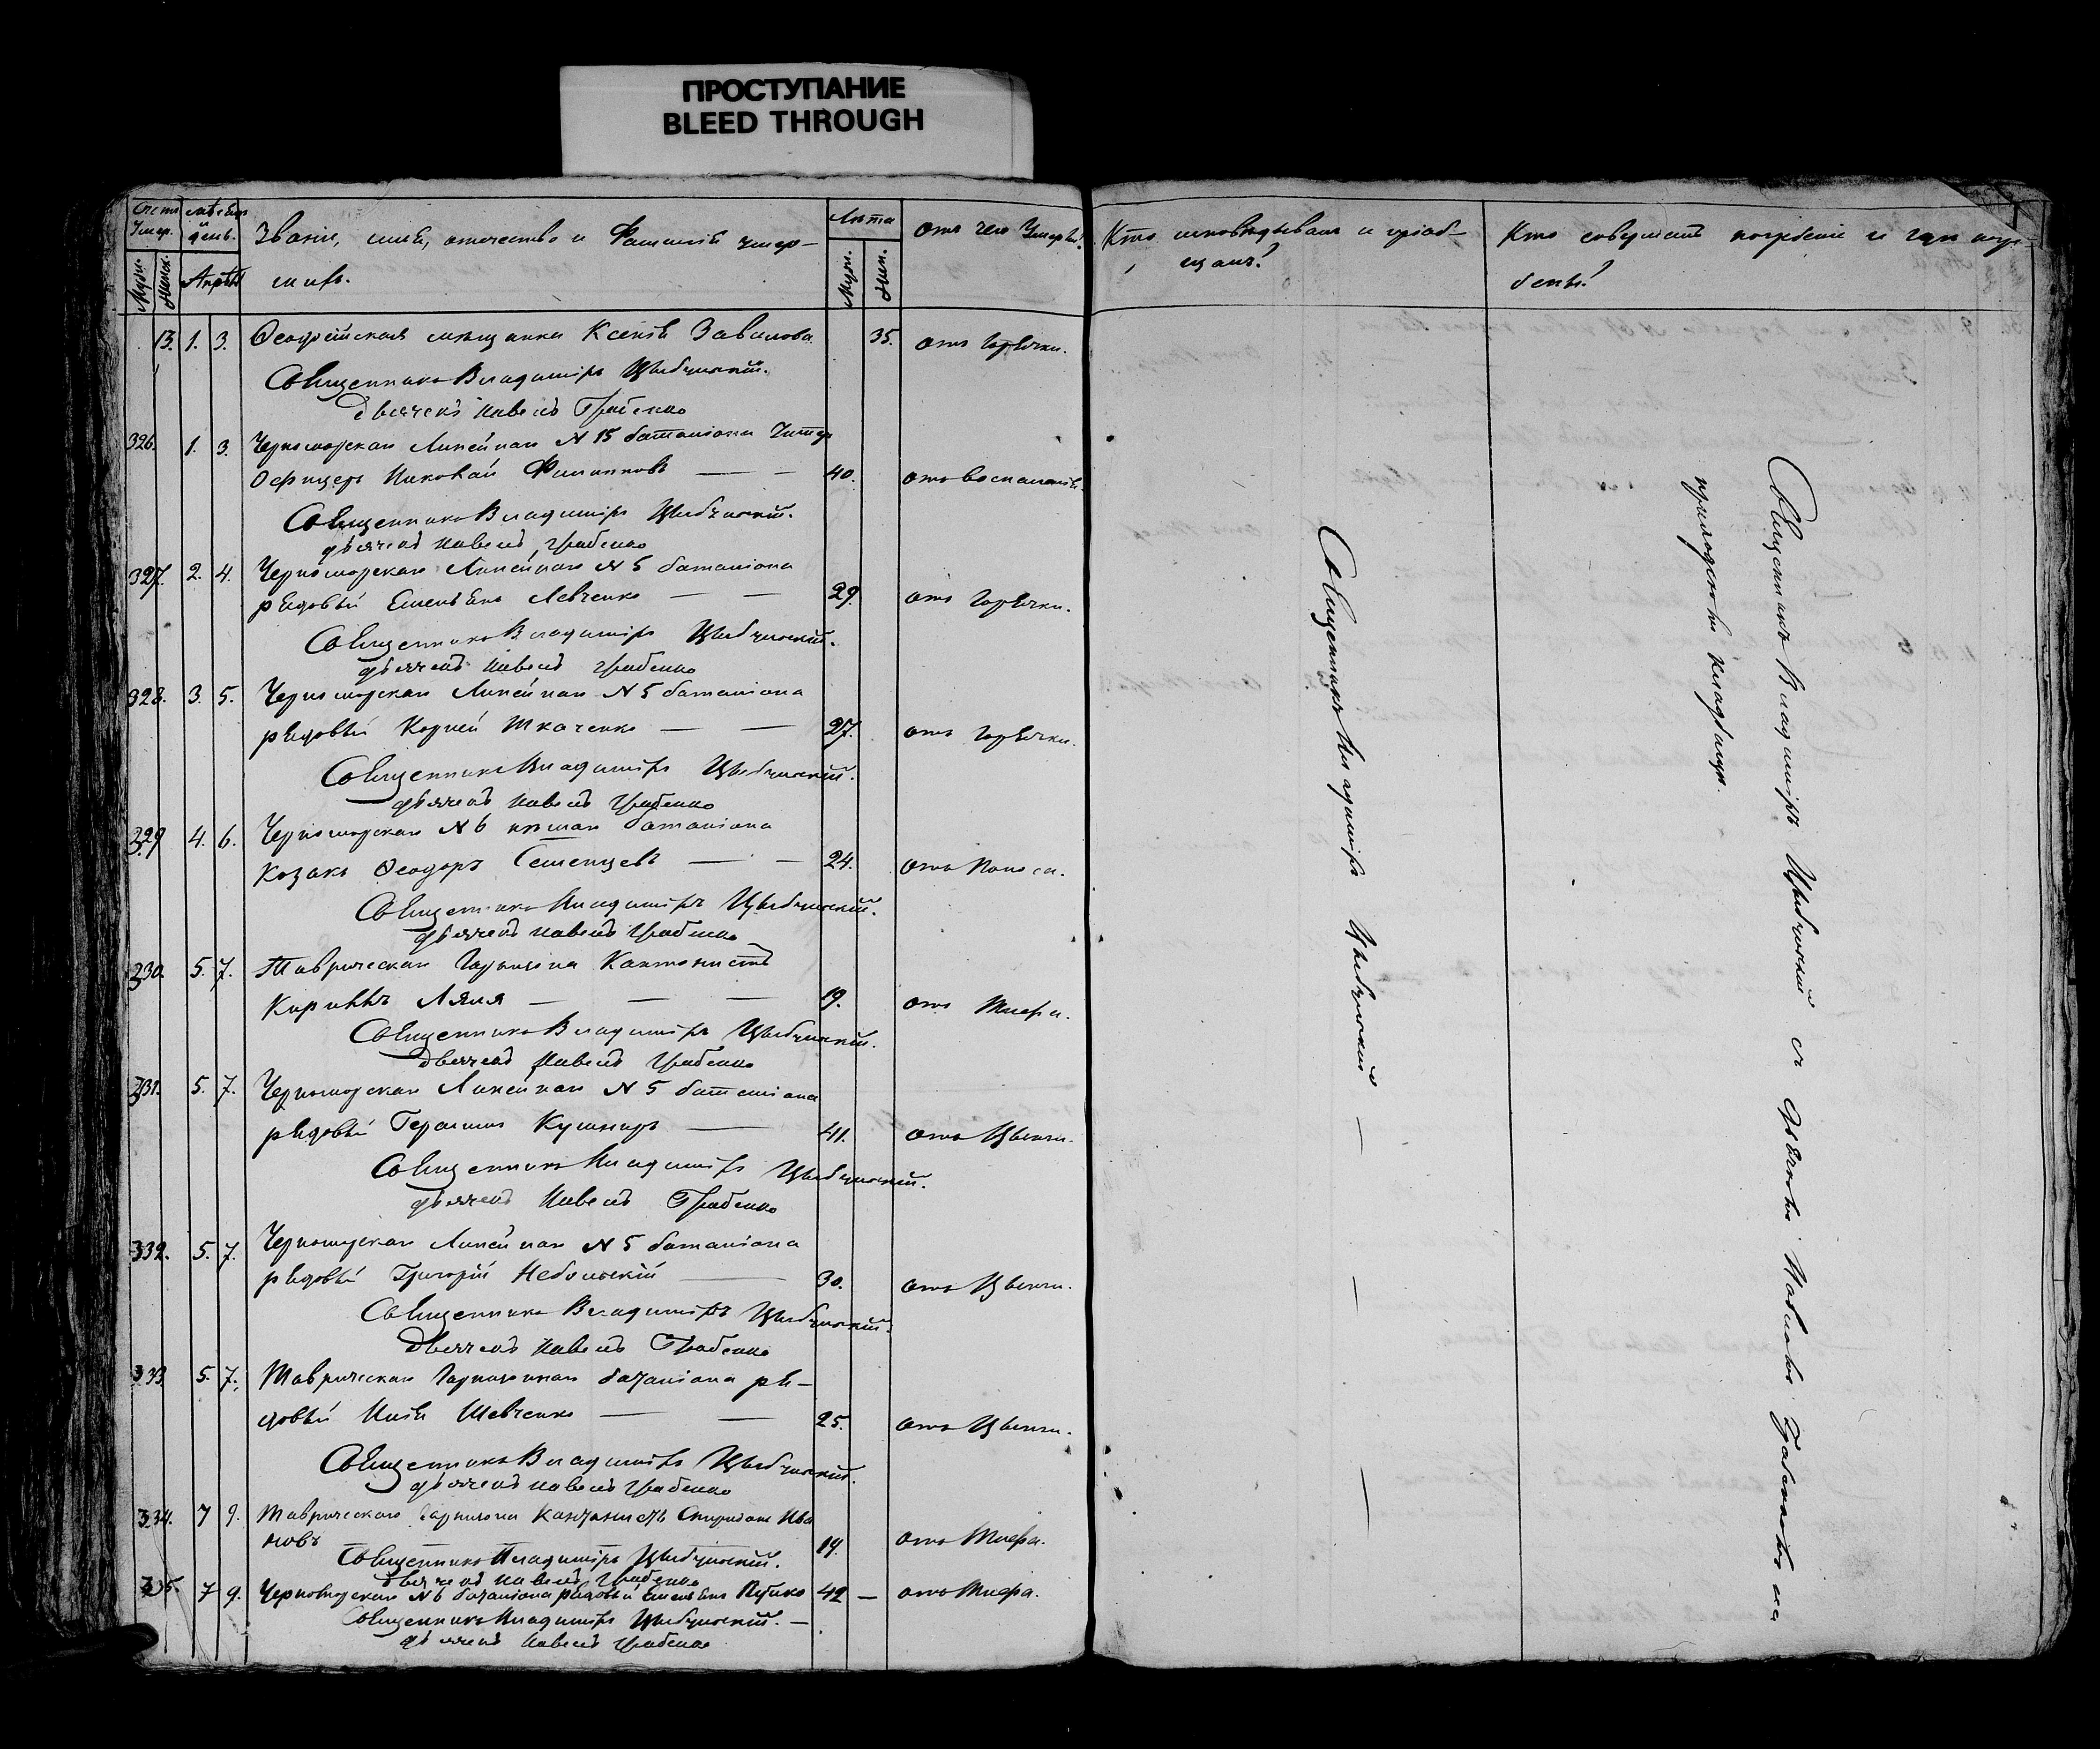 ПРОСТУПАНИЕ
BLEED THROUGH
Счетъ Умер.
мѣсяцъ и день.
Званіе, имя, отчество и Фамилія умер-
шихъ.
Лѣта
отъ чего Умерли?
Кто исповѣдывалъ и пріоб-
щалъ?
Кто совершалъ погребеніе и гдѣ погре-
бены?
Муж. Жен.
Апрѣль
Муж. Жен.
13. 1. 3. Ѳеодосійская мѣщанка Ксенія Завилова 35. отъ горячки.
Священникъ Владиміръ Цыбчинскій.
Дьячекъ Павелъ Грабенко
326. 1. 3. Черноморскаго Линейнаго N 15 баталіона Унтер
Офицеръ Николай Филипповъ — — 40. отъ воспаленія.
Священникъ Владиміръ Цыбчинскій.
дьячекъ Павелъ Грабенко
327. 2. 4. Черноморскаго Линейнаго N 5 баталіона
рядовый Емельянъ Левченко — — 29. отъ горячки.
Священникъ Владиміръ Цыбчинскій.
дьячекъ Павелъ Грабенко
328. 3. 5. Черноморскаго Линейнаго N 5 баталіона
рядовый Корней Ткаченко — — 27. отъ горячки.
Священникъ Владиміръ Цыбчинскій.
дьячекъ Павелъ Грабенко
329 4. 6. Черноморскаго N 6 пѣшаго баталіона
Козакъ Ѳеодоръ Семенцевъ — — 24. отъ Поноса.
Священникъ Владиміръ Цыбчинскій.
дьячекъ Павелъ Грабенко
330. 5. 7. Таврическаго Гарнизона Кантонистъ
Кирилъ Ляля — — — 19. отъ Тифа.
Священникъ Владиміръ Цыбчинскій.
Дьячекъ Павелъ Грабенко
331. 5. 7. Черноморскаго Линейнаго N 5 баталіона
рядовый Герасимъ Кушниръ — 41. отъ Цынги.
Священникъ Владиміръ Цыбчинскій.
дьячекъ Павелъ Грабенко
332. 5. 7. Черноморскаго Линейнаго N 5 баталіона
рядовый Григорій Небольскій — 30. отъ Цынги.
Священникъ Владиміръ Цыбчинскій.
Дьячекъ Павелъ Грабенко
333 5. 7. Таврическаго Гарнизоннаго баталіона ря-
довый Илья Шевченко — — 25. отъ Цынги.
Священникъ Владиміръ Цыбчинскій.
дьячекъ Павелъ Грабенко
334. 7 9. Таврическаго Гарнизона Кантонистъ Спиридонъ Ива
новъ 19. отъ Тифа.
Священникъ Владиміръ Цыбчинскій.
Дьячекъ Павелъ Грабенко
335. 7 9. Черноморскаго N 6 баталіона рядовый Емельянъ 42 — отъ Тифа.
Священникъ Владиміръ Цыбчинскій. —
дьячекъ Павелъ Грабенко
Священникъ Владиміръ Цыбчинскій — — —
Священникъ Владиміръ Цыбчинскій съ дьячкомъ Павломъ Грабенкомъ на
приходскомъ кладбищѣ.